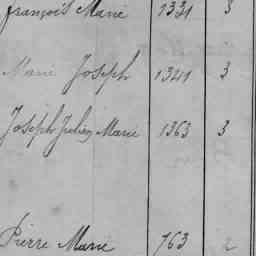 François Marie 1331 3
Marie Joseph 1341 3
Joseph Julien Marie 1363 3
Pierre Marie 763 2